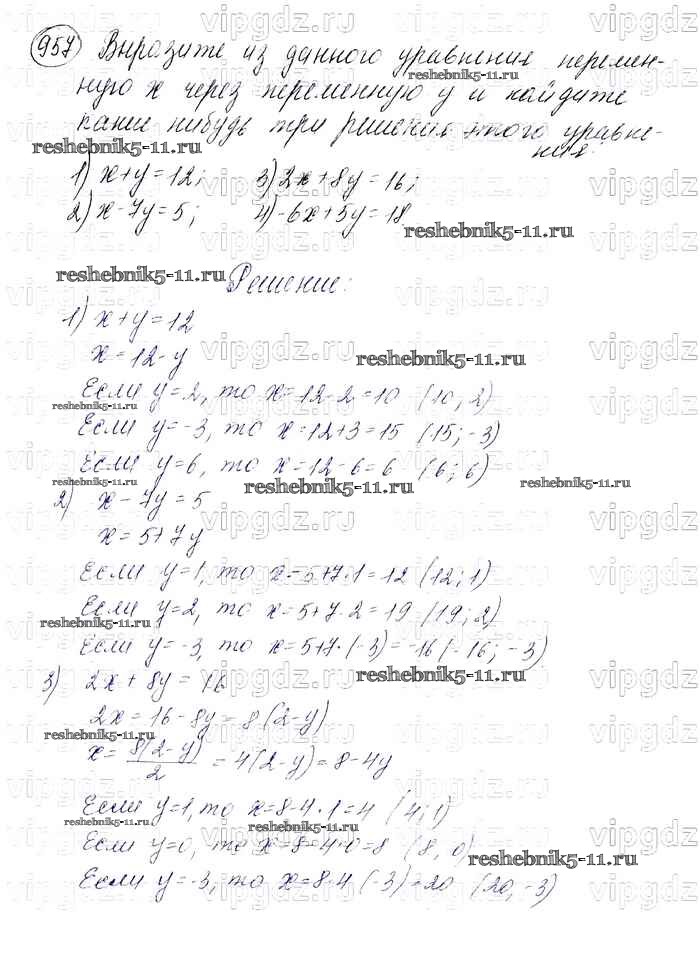 957 Выразите из данного уравнения перемен-
ную x через переменную y и найдите
какие нибудь три решения этого уравне-
ния:
1) x+y=12; 3) 2x+8y=16;
2) x-7y=5; 4) -6x+5y=18
Решение:
1) x+y=12
x=12-y
Если y=2, то x=12-2=10 (10; 2)
Если y=-3, то x=12+3=15 (15; -3)
Если y=6, то x=12-6=6 (6; 6)
2) x-7y=5
x=5+7y
Если y=1, то x=5+7·1=12 (12; 1)
Если y=2, то x=5+7·2=19 (19; 2)
Если y=-3, то x=5+7·(-3)=-16 (-16; -3)
3) 2x+8y=16
2x=16-8y=8(2-y)
x=8(2-y)/2=4(2-y)=8-4y
Если y=1, то x=8-4·1=4 (4; 1)
Если y=0, то x=8-4·0=8 (8, 0)
Если y=-3, то x=8-4(-3)=20 (20, -3)
reshebnik5-11.ru
vipgdz.ru